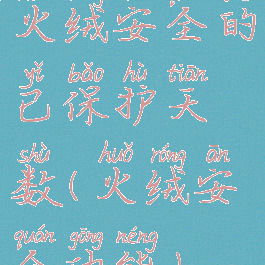 火绒安全的
yǐ bǎo hù tiān
已保护天
shù huǒ róng ān
数(火绒安
quán gōng néng
全功能)